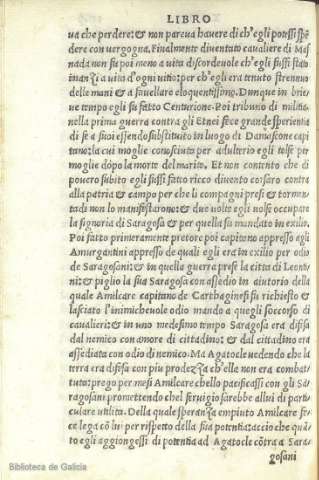 LIBRO
va che perdere: & non pareva havere di ch'egli potessi spē
dere con vergogna. Finalmente diventato cavaliere di Mas
nada non fu poi meno a vita discordevole ch'egli fussi stato
inanzi a vita d'ogni vitio: per ch'egli era tenuto strenuo
delle mani & a favellare eloquentissimo. Dunque in brie
ve tempo egli fu fatto Centurione. Poi tribuno di militia
nella prima guerra contra gli Etnei fece grande sperientia
di se a suoi essendo substituito in luogo di Damascone capi
tano: la cui moglie conosciuta per adulterio egli tolse per
moglie dopo la morte del marito. Et non contento che di
povero subito egli fussi fatto ricco divento corsaro contro
alla patria & campo per che li compagni presi & tormen
tadi non lo manifestarono: & due volte egli volse occupare
la signoria di Saragosa & per quella fu mandato in exilio.
Poi fatto primieramente pretore poi capitano appresso egli
Amurgantini appresso de quali egli era in exilio per odio
de Saragosani: & in quella guerra prese la citta di Leontu
ni: & piglio la sua Saragosa con assedio in aiutorio della
quale Amilcare capitano de Carthaginesi fu richiesto &
lasciato l'inimichevole odio mando a quegli soccorso di
cavalieri: & in uno medesimo tempo Saragosa era difesa
dal nemico con amore di cittadino: & dal cittadino era
assediata con odio di nemico. Ma Agatocle vedendo che la
terra era difesa con piu prodezza ch'elle non era combat
tuta: prego per mesi Amilcare chello pacificassi con gli Sa
ragosani, promettendo chel servigio sarebbe allui di parti
culare utilita. Della qual speranza empiuto Amilcare fe
ce lega cō lui per rispetto della sua potentia: accio che quā
to egli aggiongessi di potentia ad Agatocle cōtra a Sara
gosani
Biblioteca de Galicia